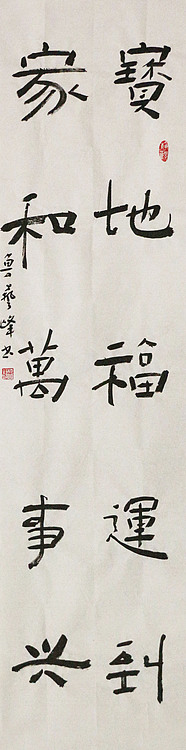 寶地福運到
家和萬事兴
魯藝峰书